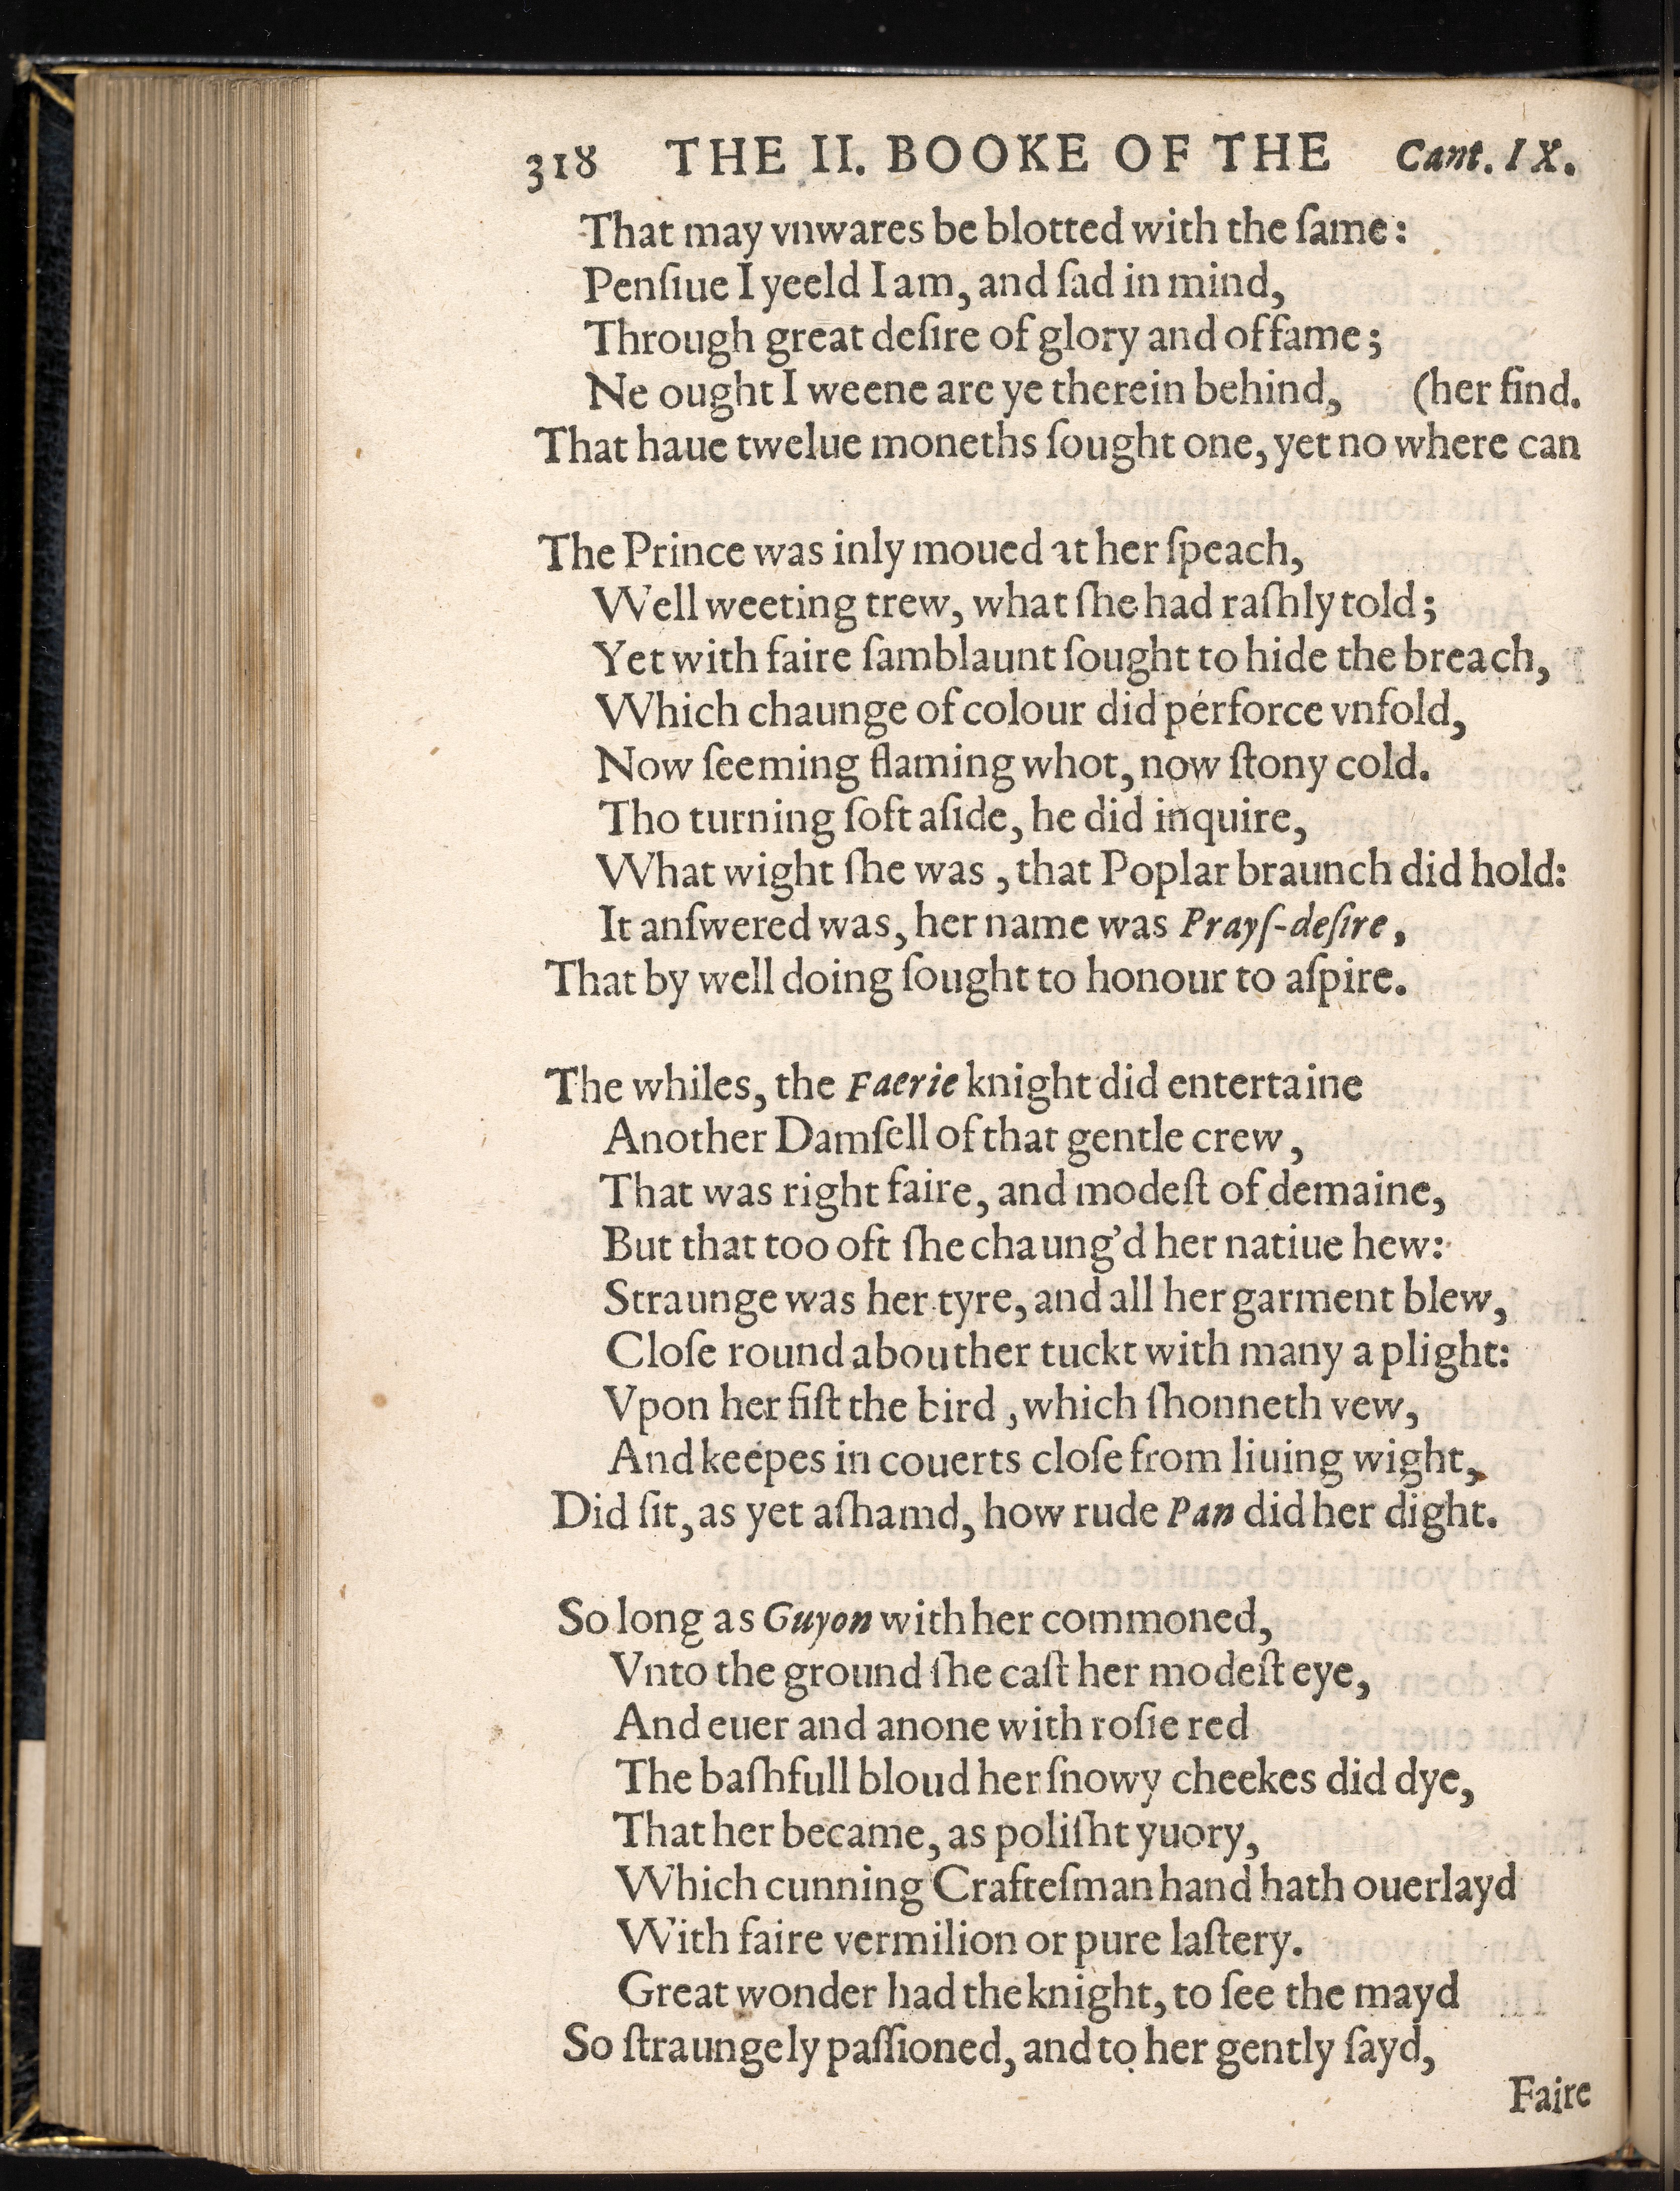 318 THE II. BOOKE OF THE Cant. IX.
That may vnwares be blotted with the ſame:
Penſiue I yeeld I am, and ſad in mind,
Through great deſire of glory and of fame;
Ne ought I weene are ye therein behind, (her find.
That haue twelue moneths ſought one, yet no where can
The Prince was inly moued at her ſpeach,
Well weeting trew, what ſhe had raſhly told;
Yet with faire ſamblaunt ſought to hide the breach,
Which chaunge of colour did perforce vnfold,
Now ſeeming flaming whot, now ſtony cold.
Tho turning ſoft aſide, he did inquire,
What wight ſhe was, that Poplar braunch did hold:
It anſwered was, her name was Prayſ-deſire,
That by well doing ſought to honour to aſpire.
The whiles, the Faerie knight did entertaine
Another Damſell of that gentle crew,
That was right faire, and modeſt of demaine,
But that too oft ſhe chaung'd her natiue hew:
Straunge was her tyre, and all her garment blew,
Cloſe round about her tuckt with many a plight:
Vpon her fiſt the bird, which ſhonneth vew,
And keepes in couerts cloſe from liuing wight,
Did ſit, as yet aſhamd, how rude Pan did her dight.
So long as Guyon with her commoned,
Vnto the ground ſhe caſt her modeſt eye,
And euer and anone with roſie red
The baſhfull bloud her ſnowy cheekes did dye,
That her became, as poliſht yuory,
Which cunning Crafteſman hand hath ouerlayd
With faire vermilion or pure laſtery.
Great wonder had the knight, to ſee the mayd
So ſtraungely paſſioned, and to her gently ſayd,
Faire